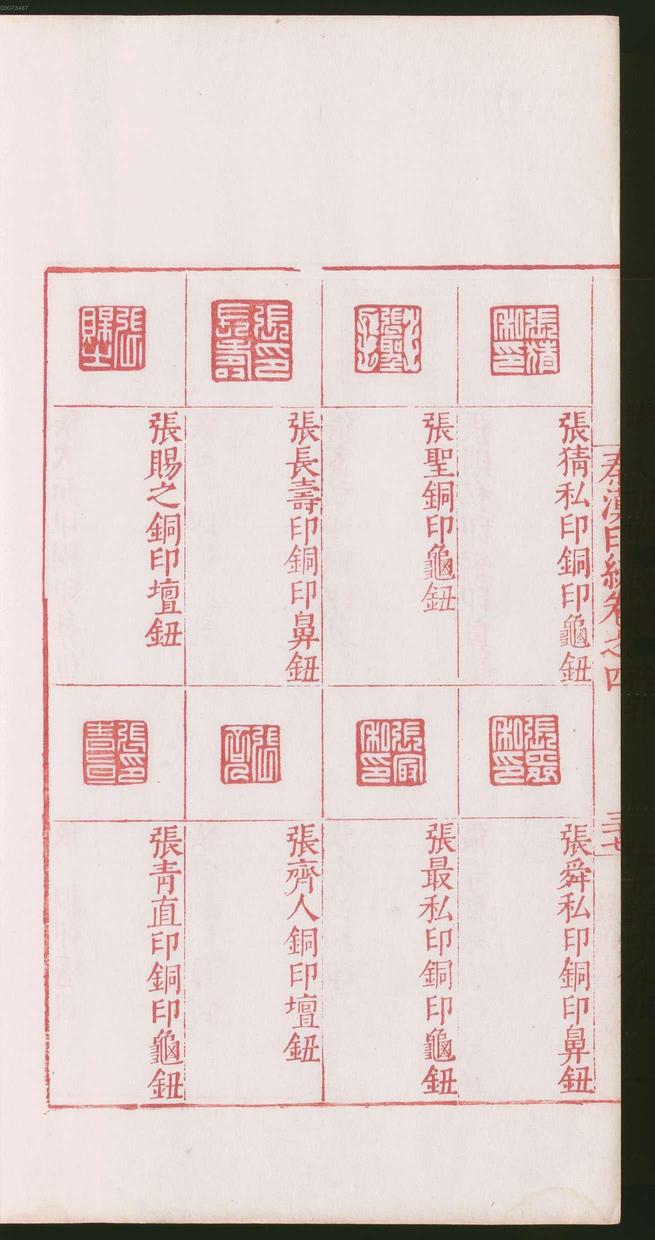 00073467
秦漢印統卷之四
三十七
張猜私印銅印龜鈕
張聖銅印龜鈕
張長壽印銅印鼻鈕
張賜之銅印壇鈕
張舜私印銅印鼻鈕
張最私印銅印龜鈕
張齊人銅印壇鈕
張青直印銅印龜鈕